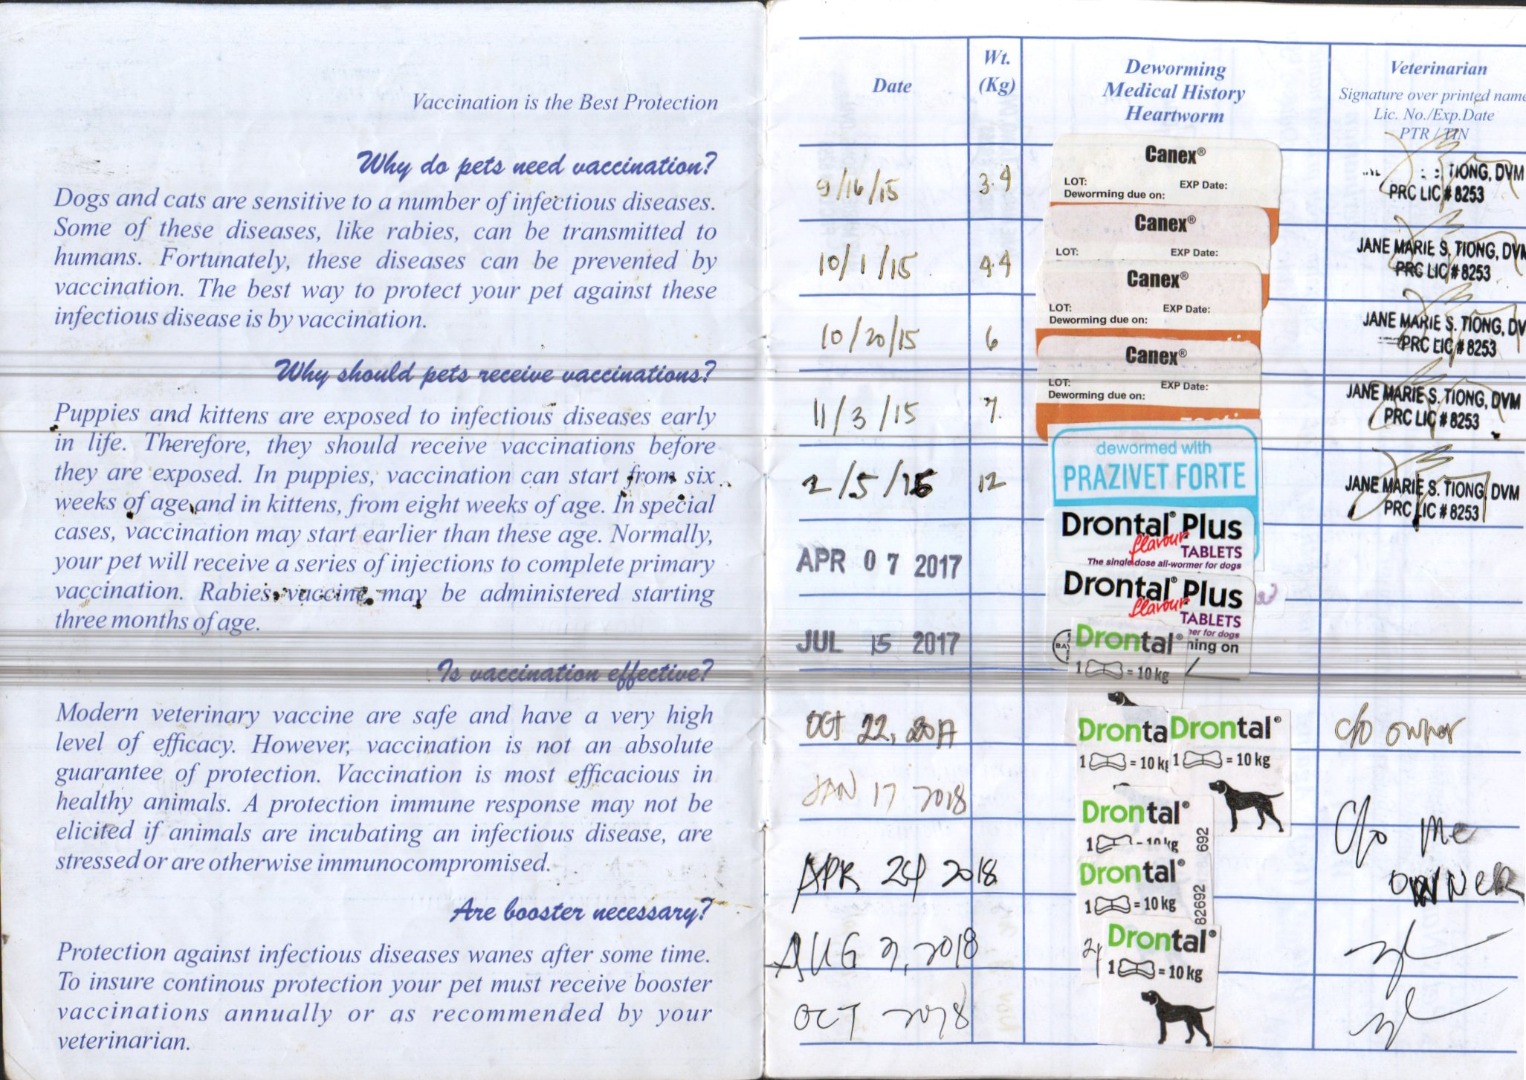 Vaccination is the Best Protection
Why do pets need vaccination?
Dogs and cats are sensitive to a number of infectious diseases.
Some of these diseases, like rabies, can be transmitted to
humans. Fortunately, these diseases can be prevented by
vaccination. The best way to protect your pet against these
infectious disease is by vaccination.
Why should pets receive vaccinations?
Puppies and kittens are exposed to infectious diseases early
in life. Therefore, they should receive vaccinations before
they are exposed. In puppies, vaccination can start from six
weeks of age and in kittens, from eight weeks of age. In special
cases, vaccination may start earlier than these age. Normally,
your pet will receive a series of injections to complete primary
vaccination. Rabies vaccine may be administered starting
three months of age.
Is vaccination effective?
Modern veterinary vaccine are safe and have a very high
level of efficacy. However, vaccination is not an absolute
guarantee of protection. Vaccination is most efficacious in
healthy animals. A protection immune response may not be
elicited if animals are incubating an infectious disease, are
stressed or are otherwise immunocompromised.
Are booster necessary?
Protection against infectious diseases wanes after some time.
To insure continous protection your pet must receive booster
vaccinations annually or as recommended by your
veterinarian.
Date
Wt.
(Kg)
Deworming
Medical History
Heartworm
Veterinarian
Signature over printed name
Lic. No./Exp.Date
PTR / TIN
9/16/15
3.9
Canex®
LOT: EXP Date:
Deworming due on:
TIONG, DVM
PRC LIC # 8253
10/1/15
4.4
Canex®
LOT: EXP Date:
JANE MARIE S. TIONG, DVM
PRC LIC # 8253
10/20/15
6
Canex®
LOT: EXP Date:
Deworming due on:
JANE MARIE S. TIONG, DV
PRC LIC # 8253
11/3/15
7
Canex®
LOT: EXP Date:
Deworming due on:
JANE MARIE S. TIONG, DVM
PRC LIC # 8253
2/5/16
12
dewormed with
PRAZIVET FORTE
JANE MARIE S. TIONG, DVM
PRC LIC # 8253
APR 07 2017
Drontal® Plus
flavour TABLETS
The single dose all-wormer for dogs
JUL 15 2017
Drontal® Plus
flavour TABLETS
mer for dogs
ning on
Drontal®
1 = 10 kg
OCT 22, 2017
Dronta
1 = 10 kg
Drontal®
1 = 10 kg
c/o owner
JAN 17 2018
Drontal®
1 = 10 kg
692
c/o me
OWNER
APR 24 2018
Drontal®
1 = 10 kg
82692
AUG 2, 2018
Drontal®
1 = 10 kg
OCT 2018